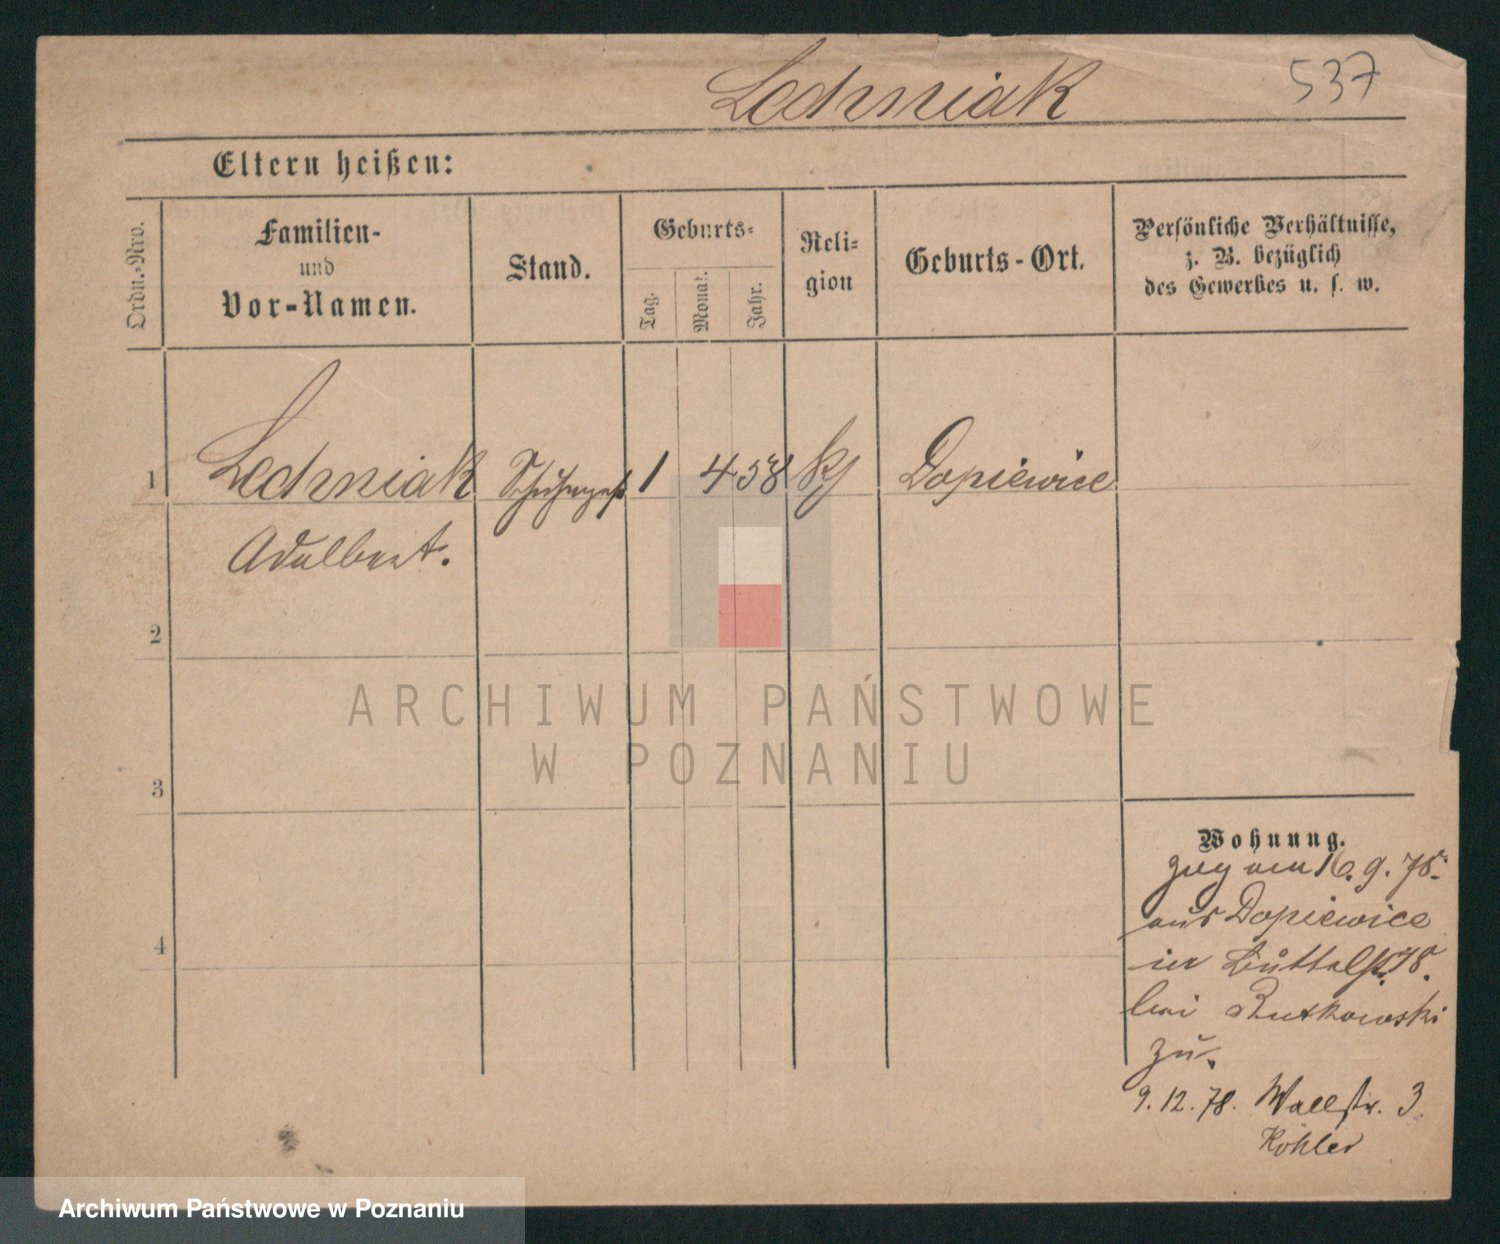 Ledniak
537
Eltern heißen:
Ordn.-Nro.
Familien-
und
Vor-Namen.
Stand.
Geburts-
Tag.
Monat.
Jahr.
Reli-
gion
Geburts-Ort.
Persönliche Verhältnisse,
z. B. bezüglich
des Gewerbes u. s. w.
1 1 4 58 Dopiewice
Adalbert.
2
3
4
ARCHIWUM PAŃSTWOWE
W POZNANIU
Wohnung.
zog am 16. 9. 78.
aus Dopiewice
18.
bei Rutkowski
zu.
9. 12. 78. Wallstr. 3.
Köhler
Archiwum Państwowe w Poznaniu